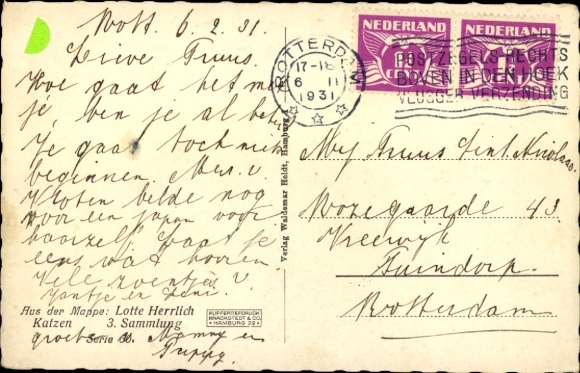 Rott. 6.2.31.
Lieve Truus.
Hoe gaat het met
je, ben je al beter
Je gaat toch niet
beginnen. Mevr. v.
Kloten belde nog
voor een japon voor
haarzelf. Laat je
eens wat hooren.
Vele zoentjes v.
Jantje en
Aus der Mappe: Lotte Herrlich
Katzen 3. Sammlung
Serie
groeten v. Mammy en
KUPFERTIEFDRUCK
KNACKSTEDT & CO.
HAMBURG 22
Verlag Waldemar Heldt, Hamburg 1
NEDERLAND
NEDERLAND
CENT
ROTTERDAM
17-18
6 II
1931
POSTZEGELS RECHTS
BOVEN IN DEN HOEK
VLUGGER VERZENDING
Mej Truus Sint Nicolaas
Rozegaarde 43
Vreewijk
Tuindorp.
Rotterdam